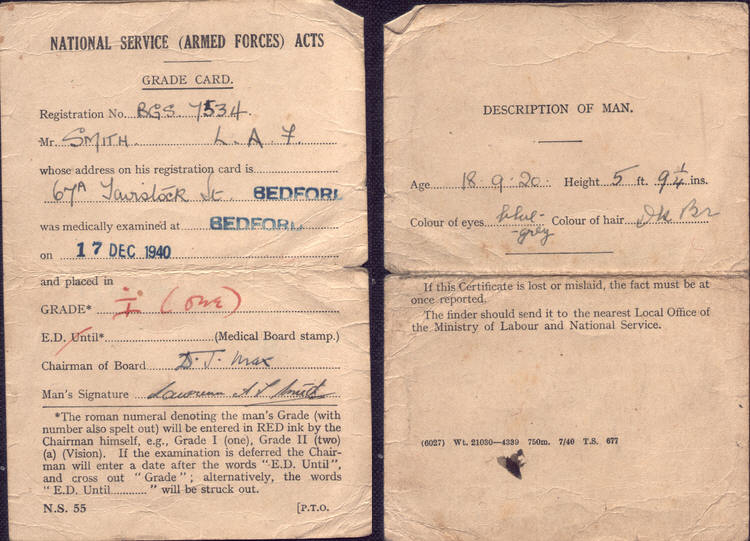 NATIONAL SERVICE (ARMED FORCES) ACTS
GRADE CARD.
Registration No. BGS 7534.
Mr. SMITH L. A. F.
whose address on his registration card is
67A Tavistock St. BEDFORD
was medically examined at BEDFORD
on 17 DEC 1940
and placed in
GRADE* I (one)
E.D. Until* (Medical Board stamp.)
Chairman of Board D. J. Max
Man's Signature A F Smith
*The roman numeral denoting the man's Grade (with
number also spelt out) will be entered in RED ink by the
Chairman himself, e.g., Grade I (one), Grade II (two)
(a) (Vision). If the examination is deferred the Chair-
man will enter a date after the words "E.D. Until",
and cross out "Grade"; alternatively, the words
"E.D. Until............" will be struck out.
N.S. 55 [P.T.O.
DESCRIPTION OF MAN.
Age 18.9.20. Height 5 ft. 9¼ ins.
Colour of eyes blue- Colour of hair Dk Br
-grey
If this Certificate is lost or mislaid, the fact must be at
once reported.
The finder should send it to the nearest Local Office of
the Ministry of Labour and National Service.
(6027) Wt. 21030—4339 750m. 7/40 T.S. 677